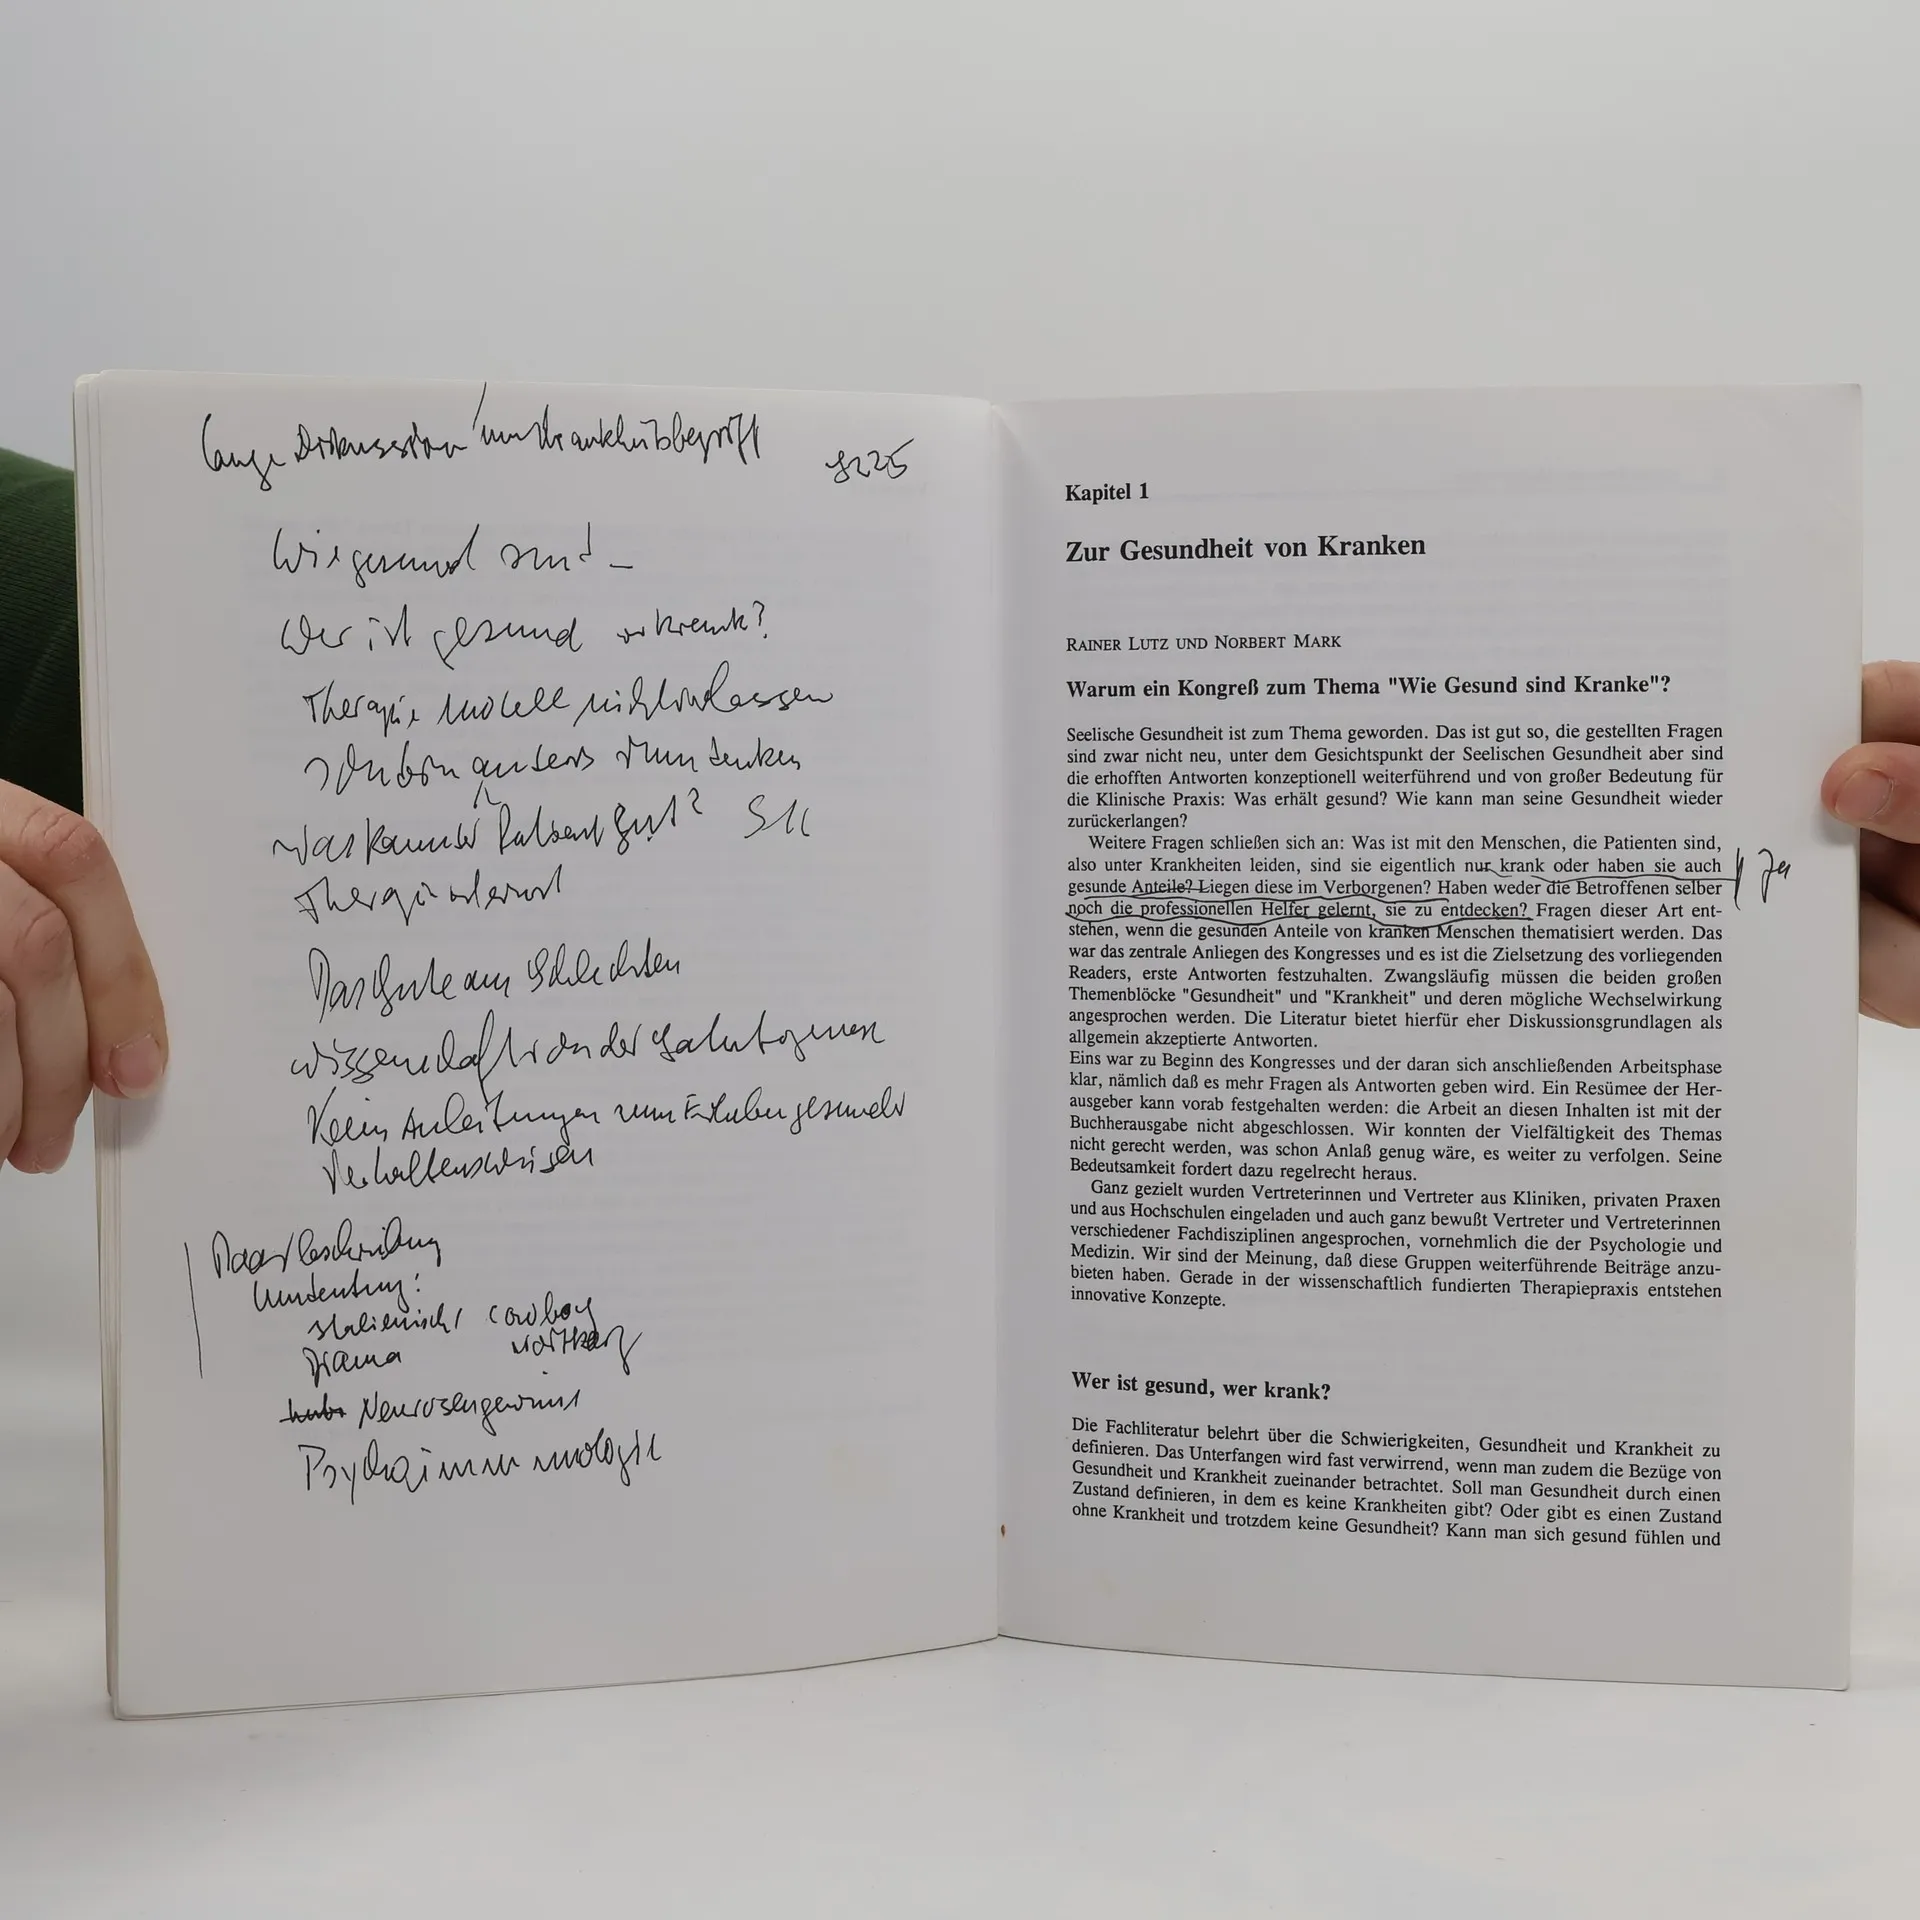 lange Diskussion um Krankheitsbegriff
8225
Wie gesund sind –
Wer ist gesund wer krank?
Therapie Modell nicht
sondern anders denken
Was kann der Patient gut? S 11
Das Gute am Schlechten
wissenschaftl der Salutogenese
Keine Anleitungen zum Erlaben gesunder
Verhaltensweisen
Paarbeschreibung
Umdeutung:
Italienisch Cowboy
Drama
Neurosengewinn
Psychoimmunologie
Kapitel 1
Zur Gesundheit von Kranken
RAINER LUTZ UND NORBERT MARK
Warum ein Kongreß zum Thema "Wie Gesund sind Kranke"?
Seelische Gesundheit ist zum Thema geworden. Das ist gut so, die gestellten Fragen
sind zwar nicht neu, unter dem Gesichtspunkt der Seelischen Gesundheit aber sind
die erhofften Antworten konzeptionell weiterführend und von großer Bedeutung für
die Klinische Praxis: Was erhält gesund? Wie kann man seine Gesundheit wieder
zurückerlangen?
Weitere Fragen schließen sich an: Was ist mit den Menschen, die Patienten sind,
also unter Krankheiten leiden, sind sie eigentlich nur krank oder haben sie auch
gesunde Anteile? Liegen diese im Verborgenen? Haben weder die Betroffenen selber
Ja
noch die professionellen Helfer gelernt, sie zu entdecken? Fragen dieser Art ent-
stehen, wenn die gesunden Anteile von kranken Menschen thematisiert werden. Das
war das zentrale Anliegen des Kongresses und es ist die Zielsetzung des vorliegenden
Readers, erste Antworten festzuhalten. Zwangsläufig müssen die beiden großen
Themenblöcke "Gesundheit" und "Krankheit" und deren mögliche Wechselwirkung
angesprochen werden. Die Literatur bietet hierfür eher Diskussionsgrundlagen als
allgemein akzeptierte Antworten.
Eins war zu Beginn des Kongresses und der daran sich anschließenden Arbeitsphase
klar, nämlich daß es mehr Fragen als Antworten geben wird. Ein Resümee der Her-
ausgeber kann vorab festgehalten werden: die Arbeit an diesen Inhalten ist mit der
Buchherausgabe nicht abgeschlossen. Wir konnten der Vielfältigkeit des Themas
nicht gerecht werden, was schon Anlaß genug wäre, es weiter zu verfolgen. Seine
Bedeutsamkeit fordert dazu regelrecht heraus.
Ganz gezielt wurden Vertreterinnen und Vertreter aus Kliniken, privaten Praxen
und aus Hochschulen eingeladen und auch ganz bewußt Vertreter und Vertreterinnen
verschiedener Fachdisziplinen angesprochen, vornehmlich die der Psychologie und
Medizin. Wir sind der Meinung, daß diese Gruppen weiterführende Beiträge anzu-
bieten haben. Gerade in der wissenschaftlich fundierten Therapiepraxis entstehen
innovative Konzepte.
Wer ist gesund, wer krank?
Die Fachliteratur belehrt über die Schwierigkeiten, Gesundheit und Krankheit zu
definieren. Das Unterfangen wird fast verwirrend, wenn man zudem die Bezüge von
Gesundheit und Krankheit zueinander betrachtet. Soll man Gesundheit durch einen
Zustand definieren, in dem es keine Krankheiten gibt? Oder gibt es einen Zustand
ohne Krankheit und trotzdem keine Gesundheit? Kann man sich gesund fühlen und